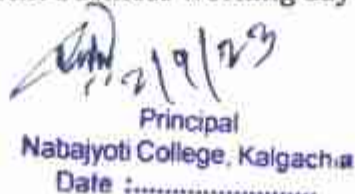 Working day
2/9/23
Principal
Nabajyoti College, Kalgachia
Date :........................